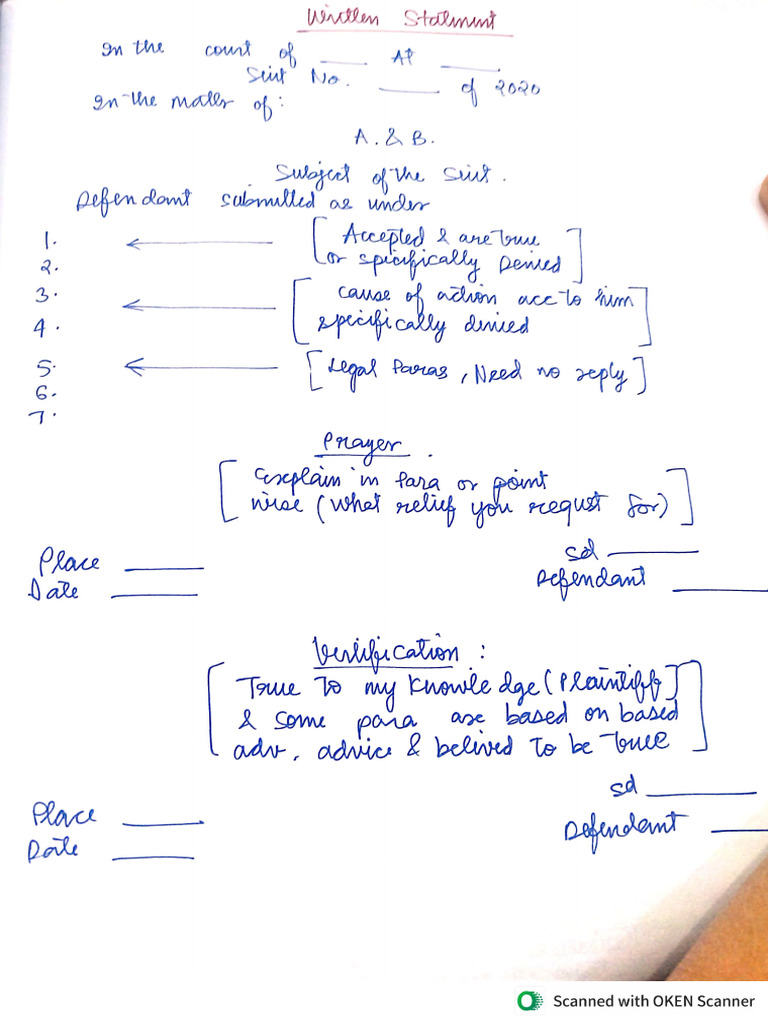 Written Statment
In the court of ____ At ____
Suit No. ____ of 2020
In the matter of:
A. & B.
Subject of the Suit.
Defendant submitted as under
1. ← [Accepted & are true
2. or specifically Denied]
3. ← [cause of action acc to him
4. specifically denied]
5. ← [Legal Paras, Need no reply]
6.
7.
Prayer.
[Explain in Para or point
wise (What relief you requst for)]
Place ____ sd ____
Date ____ Defendant ____
Verification:
[True To my Knowledge (Plaintiff]
& some para are based on based
adv. advice & belived to be true]
sd ____
Place ____
Defendant ____
Date ____
Scanned with OKEN Scanner